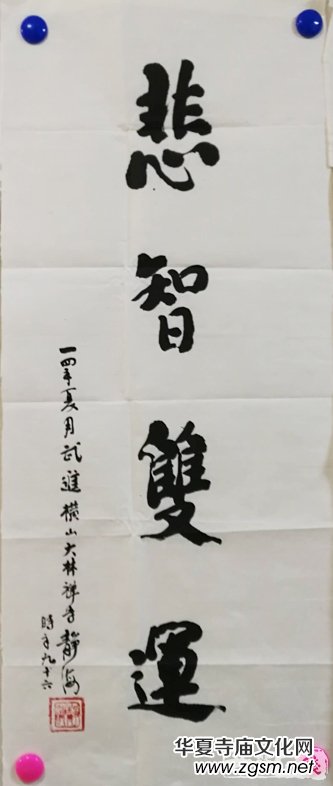 悲智雙運
一四年夏月武進橫山大林禅寺靜海
時年九十六
华夏寺庙文化网
www.zgsm.net